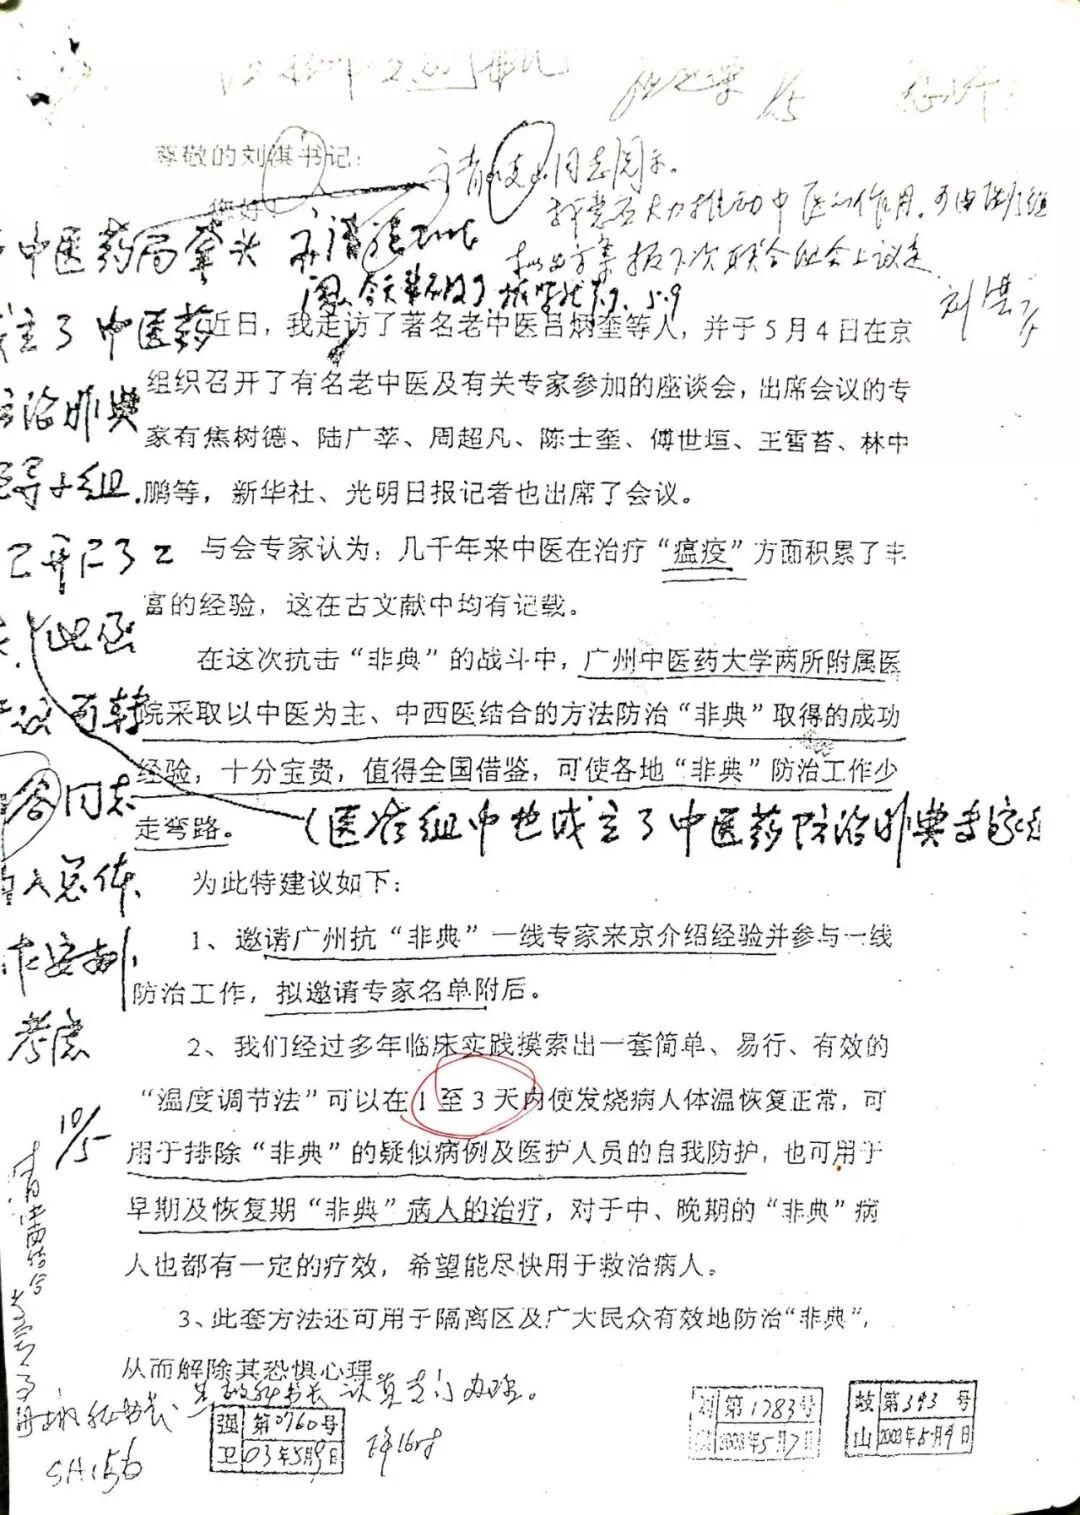 尊敬的刘淇书记：
您好！
同志阅示。
大力推动中医的作用。可由医疗组
方案报下次联合组会上议定
刘淇
5.9
中医药局牵头
成立了中医药
防治非典
领导小组.
已开了2
此函
建议可转
同志
总体
作安排
考虑
10/5
近日，我走访了著名老中医吕炳奎等人，并于5月4日在京
组织召开了有名老中医及有关专家参加的座谈会，出席会议的专
家有焦树德、陆广莘、周超凡、陈士奎、傅世垣、王雪苔、林中
鹏等，新华社、光明日报记者也出席了会议。
与会专家认为：几千年来中医在治疗“瘟疫”方面积累了丰
富的经验，这在古文献中均有记载。
在这次抗击“非典”的战斗中，广州中医药大学两所附属医
院采取以中医为主、中西医结合的方法防治“非典”取得的成功
经验，十分宝贵，值得全国借鉴，可使各地“非典”防治工作少
走弯路。
（医疗组中也成立了中医药防治非典专家组
为此特建议如下：
1、邀请广州抗“非典”一线专家来京介绍经验并参与一线
防治工作，拟邀请专家名单附后。
2、我们经过多年临床实践摸索出一套简单、易行、有效的
“温度调节法”可以在1至3天内使发烧病人体温恢复正常，可
用于排除“非典”的疑似病例及医护人员的自我防护，也可用于
早期及恢复期“非典”病人的治疗，对于中、晚期的“非典”病
人也都有一定的疗效，希望能尽快用于救治病人。
3、此套方法还可用于隔离区及广大民众有效地防治“非典”，
从而解除其恐惧心理
秘书长认真专门办理。
强卫 第0760号
03年5月9日
刘淇 第1783号
2003年5月7日
岐山 第393号
2003年5月9日